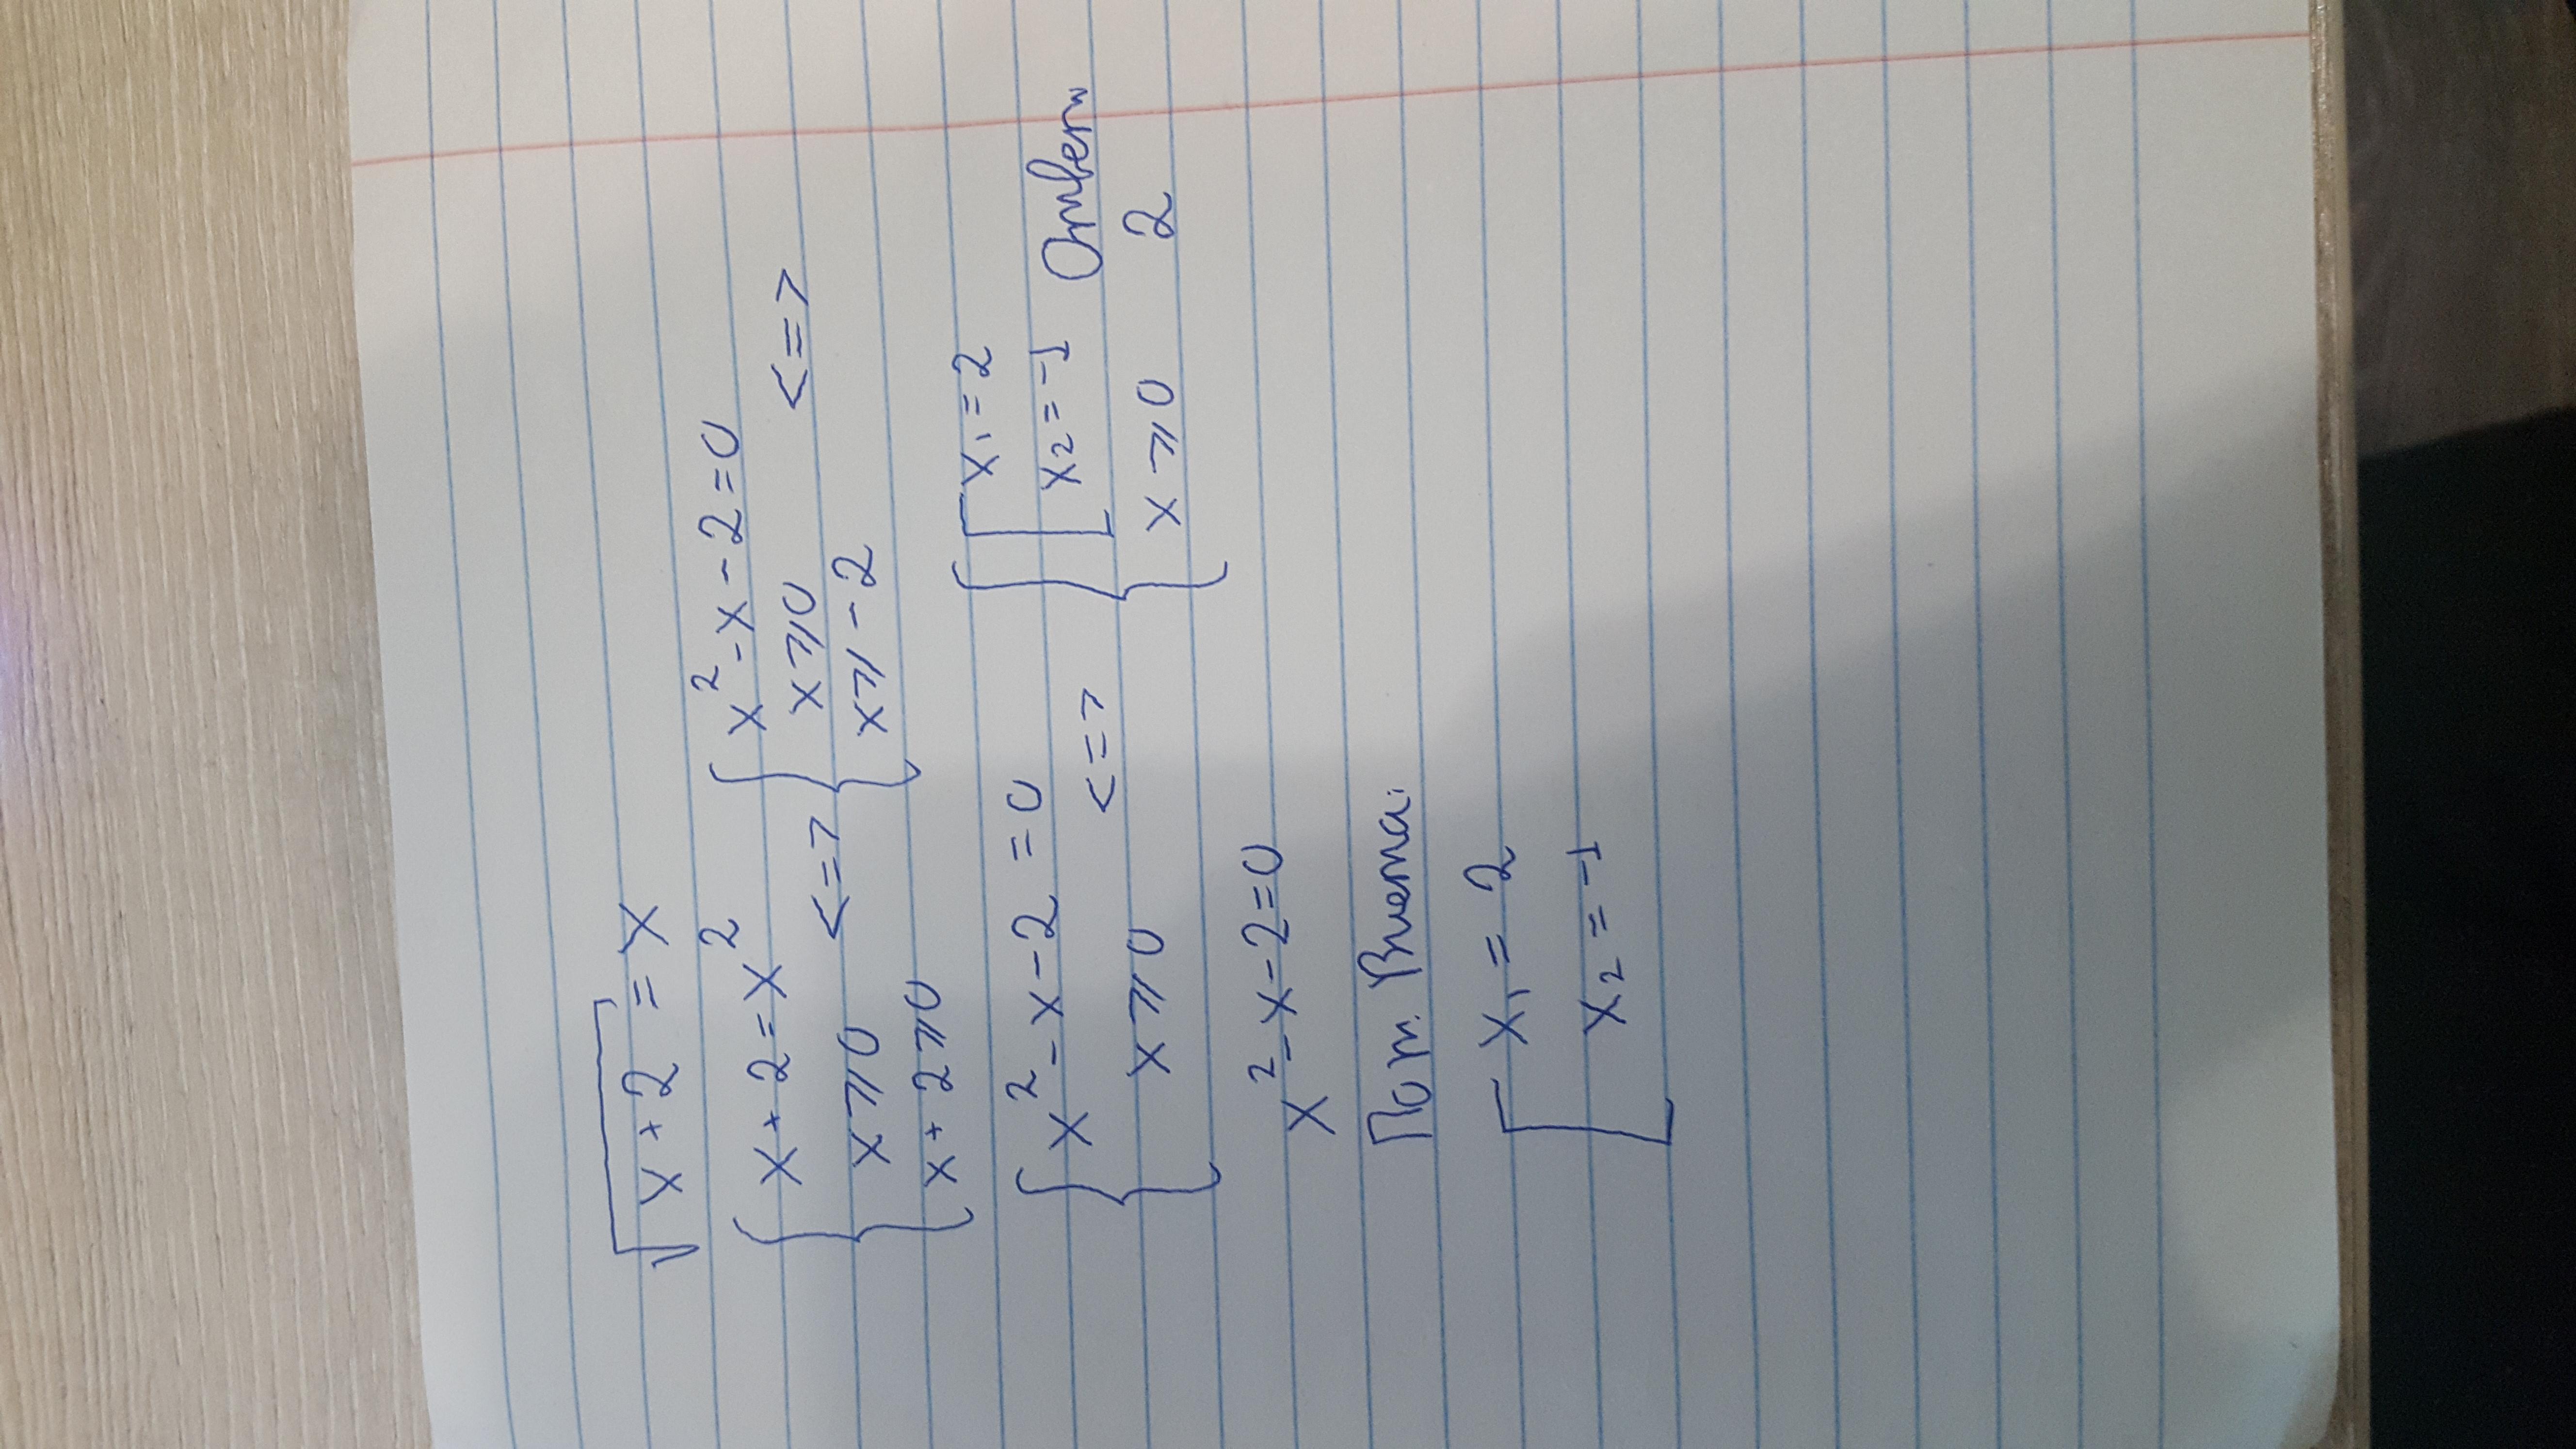 √x+2 = x
{ x+2=x² x⩾0 x+2⩾0 <=> { x²-x-2=0 x⩾0 x⩾-2 <=>
{ x²-x-2=0 x⩾0 <=> { [ x₁=2 x₂=-1 x⩾0 Ответ 2
x²-x-2=0
По т. Виета:
[ x₁=2
x₂=-1